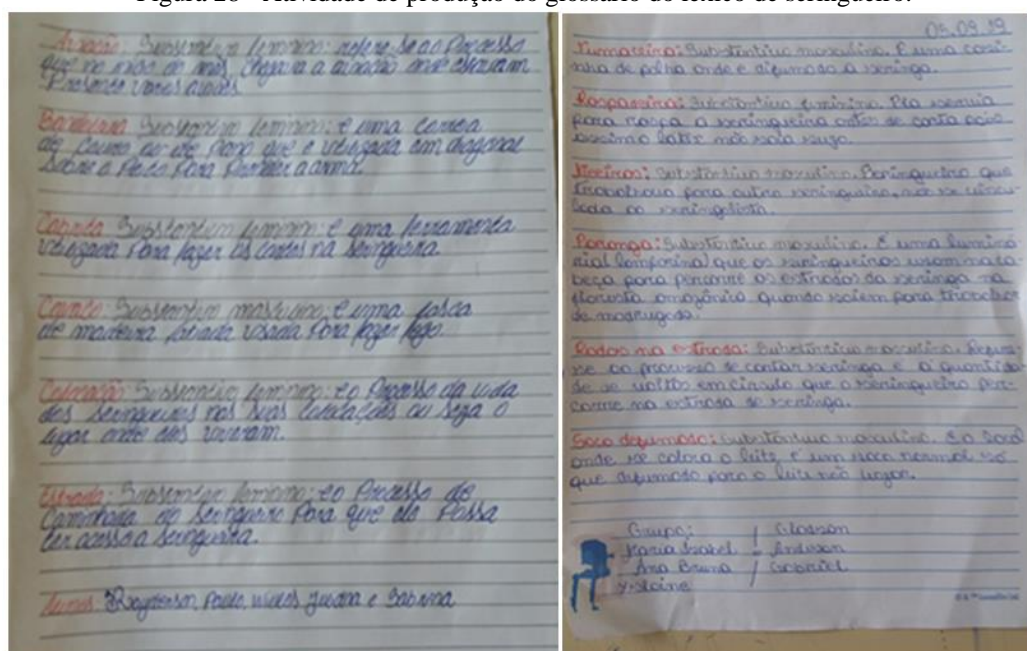 Figura 28 - Atividade de produção do glossário do léxico de seringueiro.
Substantivo feminino: refere-se ao Processo
que no mês, chegava a onde estavam
Presente
Bandoleira Substantivo feminino: é uma correa
de couro ou de pano que é utilizada em diagonal
Sobre o Peito Para Prender a arma.
Cabrita Substantivo feminino: é uma ferramenta
utilizada Para fazer os cortes na seringueira.
Substantivo masculino: é uma lasca
de madeira usada Para fazer fogo.
Colocação Substantivo feminino: é o Processo da vida
dos seringueiros nas suas colocações ou seja o
lugar onde eles viveram.
Estrada: Substantivo feminino: é o Processo de
Caminhada do seringueiro Para que ele Possa
ter acesso a seringueira.
Paulo, e Sabrina
05.09.19
Fumaceira: Substantivo masculino. É uma casi-
nha de palha onde e difumado a seringa.
Raspadeira: Substantivo feminino. Ela servia
para raspa a seringueira antes de corta pois
assim o latéx não saia sujo.
Meeiros: Substantivo masculino. Seringueiro que
trabalhava para outro seringueiro, vincu-
lado ao seringalista.
Poronga: Substantivo masculino. É uma luminá-
ria( lamparina) que os seringueiros usam na ca-
beça para percorre as estradas da seringa na
floresta amazônica quando saiem para trabalhar
de madrugada.
Rodar na estrada: Substantivo masculino. Refere-
se ao processo de cortar seringa e a quantida-
de de voltas em círculo que o seringueiro per-
corre na estrada de seringa.
Saco defumado: Substantivo masculino. É o local
onde se coloca o leite, é um saco normal só
que difumado para o leite não
Grupo: /
Maria Isabel - Anderson
Ana Bruna / Gabriel